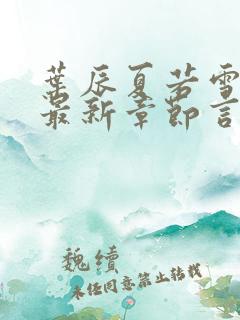 葉辰夏若雪
最新章節言
魏續
未經同意禁止轉載